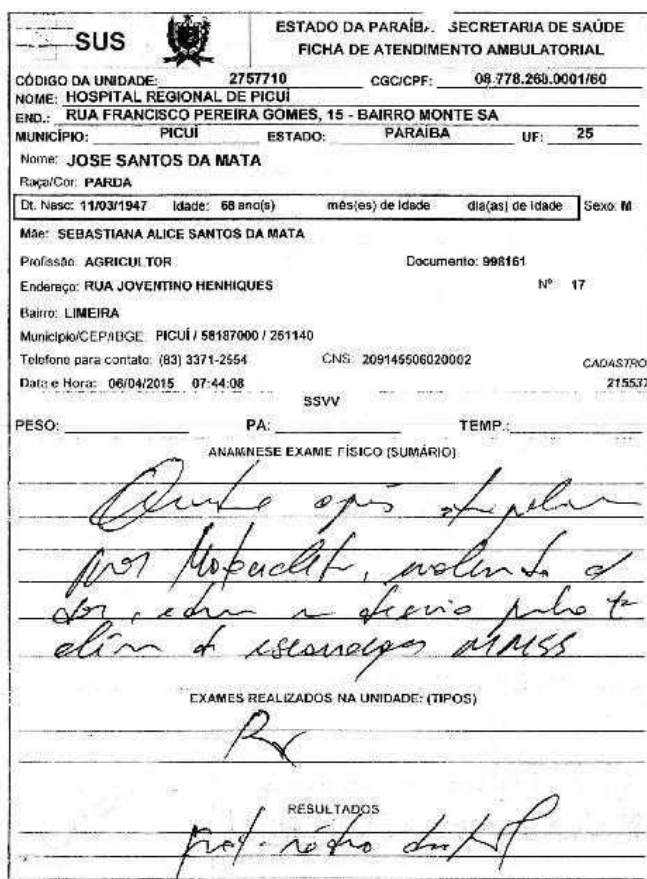 SUS
ESTADO DA PARAÍBA. SECRETARIA DE SAÚDE
FICHA DE ATENDIMENTO AMBULATORIAL
CÓDIGO DA UNIDADE: 2757710 CGC/CPF: 08.778.268.0001/60
NOME: HOSPITAL REGIONAL DE PICUÍ
END.: RUA FRANCISCO PEREIRA GOMES, 15 - BAIRRO MONTE SA
MUNICÍPIO: PICUÍ ESTADO: PARAÍBA UF: 25
Nome: JOSE SANTOS DA MATA
Raça/Cor: PARDA
Dt. Nasc: 11/03/1947 Idade: 68 ano(s) mês(es) de Idade dia(as) de Idade Sexo: M
Mãe: SEBASTIANA ALICE SANTOS DA MATA
Profissão: AGRICULTOR Documento: 998161
Endereço: RUA JOVENTINO HENHIQUES Nº 17
Bairro: LIMEIRA
Município/CEP/IBGE: PICUÍ / 58187000 / 251140
Telefone para contato: (83) 3371-2554 CNS: 209145506020002 CADASTRO
Data e Hora: 06/04/2015 07:44:08 215537
SSVV
PESO: PA: TEMP.:
ANAMNESE EXAME FÍSICO (SUMÁRIO)
após
por
dor, desvio
além de escoriações MMSS
EXAMES REALIZADOS NA UNIDADE: (TIPOS)
Rx
RESULTADOS